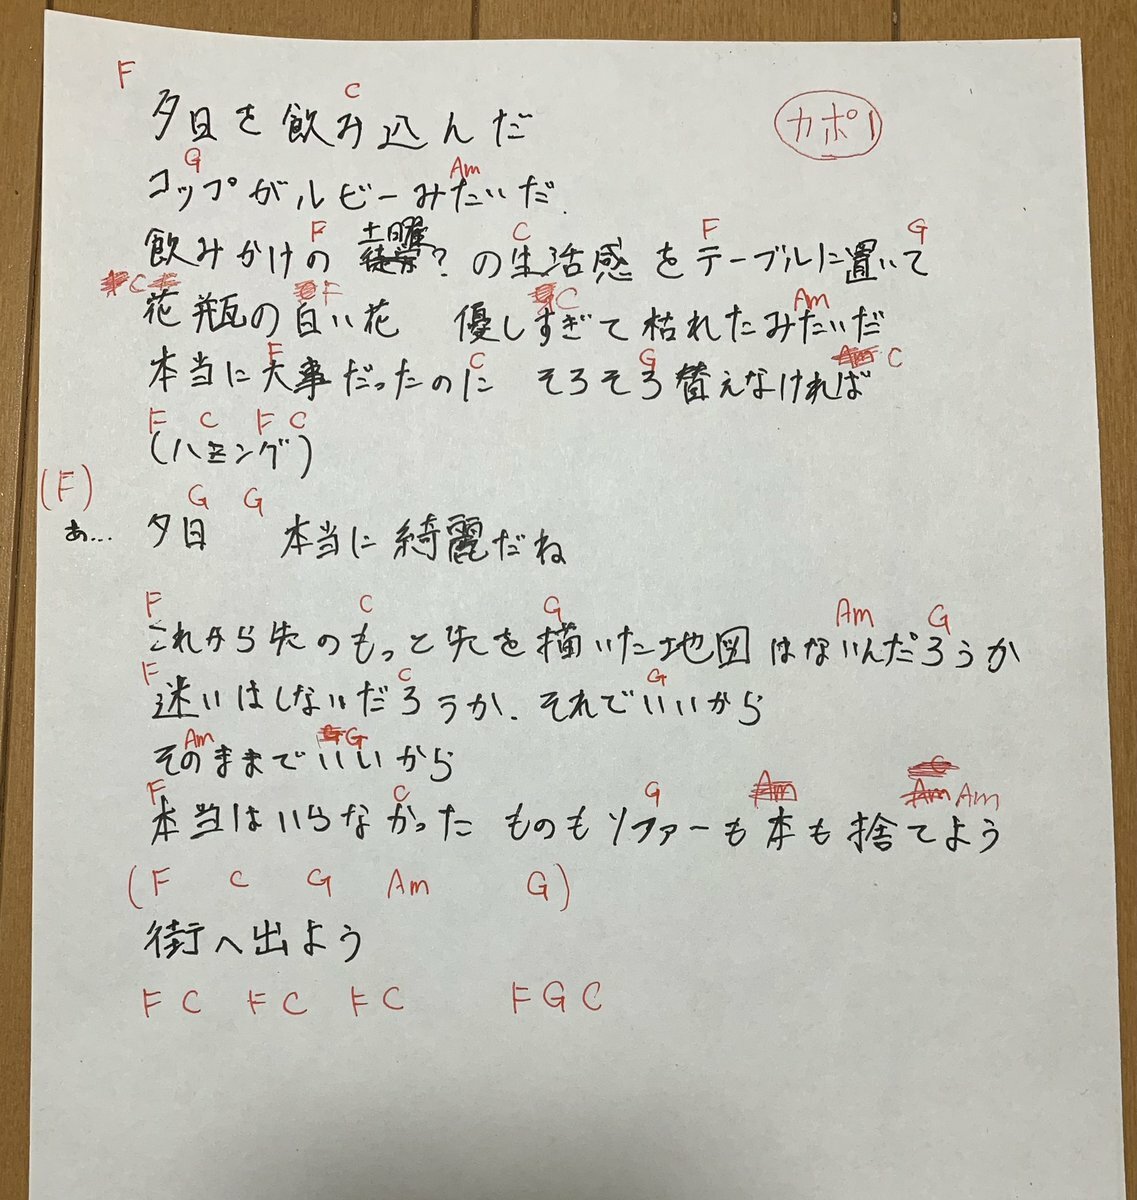 F C
夕日を飲み込んだ
カポ1
G Am
コップがルビーみたいだ.
F 土曜 C F G
飲みかけの ? の生活感をテーブルに置いて
C F C Am
花瓶の白い花 優しすぎて枯れたみたいだ
F C G Am C
本当に大事だったのに そろそろ替えなければ
F C F C
(ハミング)
(F) G G
あ... 夕日 本当に綺麗だね
F C G Am G
これから先のもっと先を描いた地図はないんだろうか
F C G
迷いはしないだろうか. それでいいから
Am G
そのままでいいから
F C G Am Am Am
本当はいらなかった ものもソファーも本も捨てよう
(F C G Am G)
街へ出よう
F C F C F C F G C